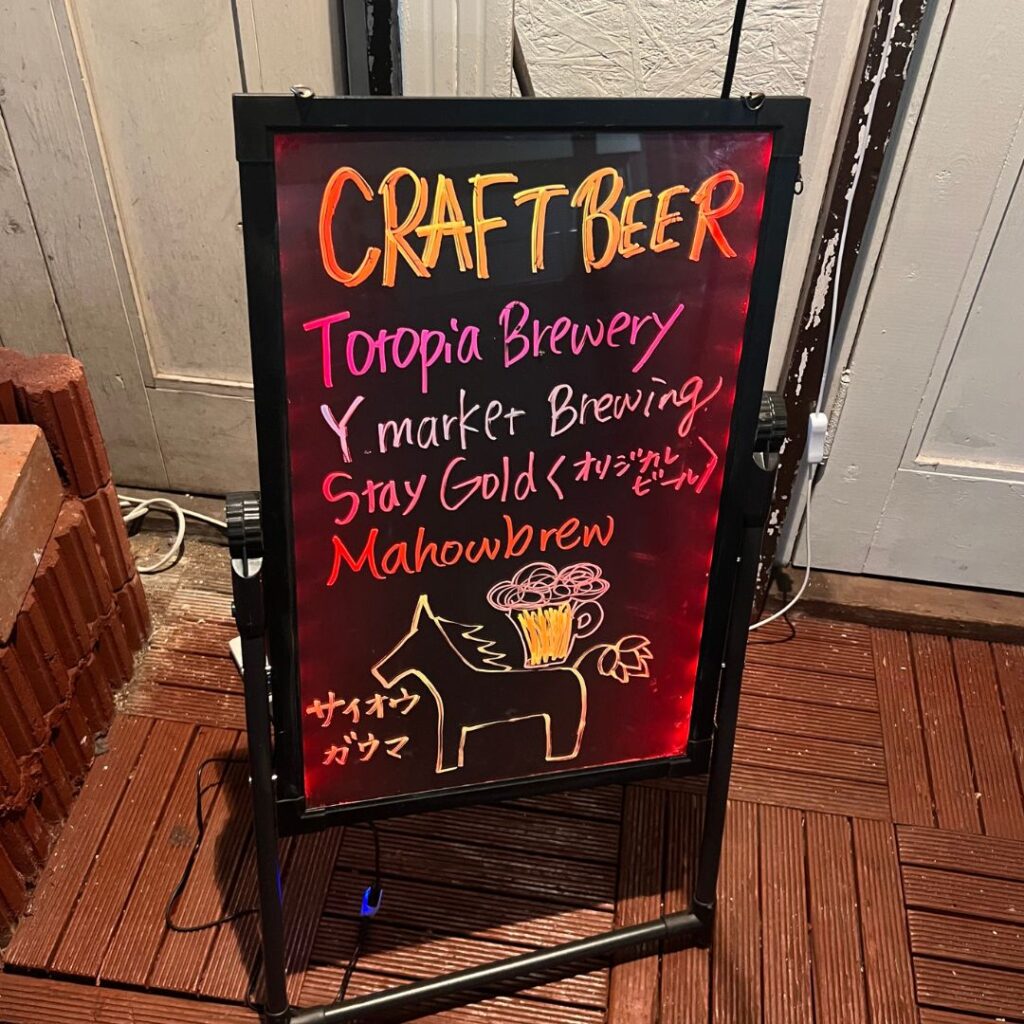 CRAFT BEER
Totopia Brewery
Y market Brewing
Stay Gold〈オリジナルビール〉
Mahowbrew
サイオウ
ガウマ